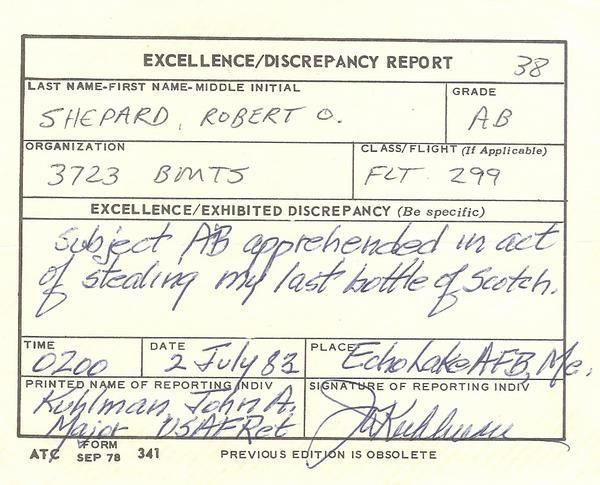 EXCELLENCE/DISCREPANCY REPORT 38
LAST NAME-FIRST NAME-MIDDLE INITIAL
GRADE
SHEPARD, ROBERT O.
AB
ORGANIZATION
CLASS/FLIGHT (If Applicable)
3723 BMTS
FLT. 299
EXCELLENCE/EXHIBITED DISCREPANCY (Be specific)
Subject AB apprehended in act
of stealing my last bottle of Scotch.
TIME
DATE
PLACE
0200
2 July 83
Echo Lake AFB, Me.
PRINTED NAME OF REPORTING INDIV
SIGNATURE OF REPORTING INDIV
Kuhlman, John A.
Major USAF Ret
JAKuhlman
ATC FORM SEP 78 341 PREVIOUS EDITION IS OBSOLETE